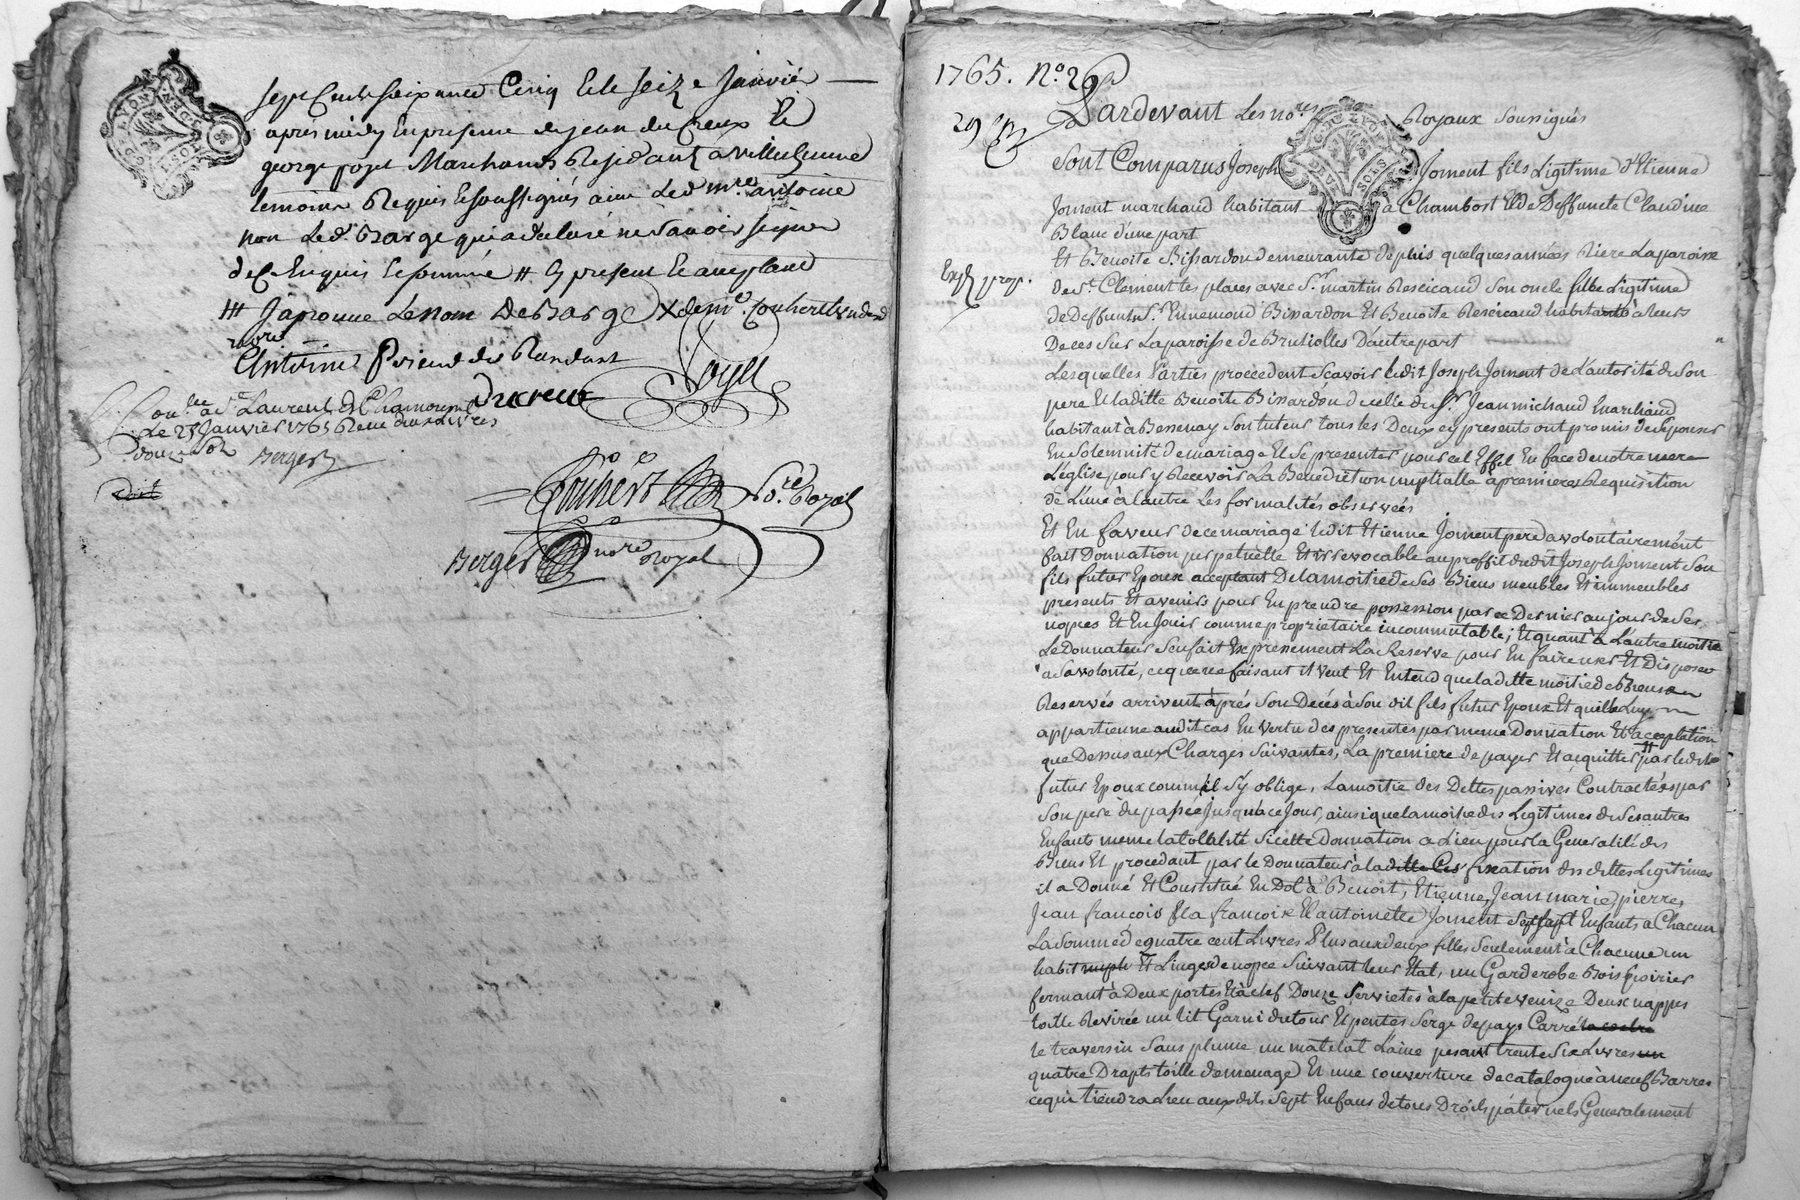 sept Cent soixante Cinq Et le seize Janvier
apres midy En presence de jean du Creux Et
george foyet Marchands Residants a villechenne
temoins Requis Et soussignés avec Led. mre. antoine
non Led. Barge qui a declaré ne savoir signer
de ce Enquis Et sommé # Cy present Et acceptant
### Japrouve Le nom De Barge X de mc. Couhert
nore
Antoine
Ducreux Foyet
Conlle. a St. Laurent De Chamousset
Le 25 Janvier 1765 Receu deux Livres
douze sols Berger
Couhert No.re Royal
Berger nore Royal
1765. No. 26
29
Pardevant Les nores Royaux soussignés
Sont Comparus Joseph Joment fils Legitime d'Etienne
Joment marchand habitant à Chambost Et de Deffuncte Claudine
Blanc d'une part
Et Benoite Bissardon demeurante depuis quelques années Riere La paroisse
Exp. prop.
de St. Clement les places avec Sr. martin Resicaud son oncle fille Legitime
de Deffunts Sr. Ennemond Bissardon Et Benoite Resicaud habitants à leurs
Deces sur La paroisse de Brulioles D'autre part
Lesquelles Parties procedent scavoir Ledit Joseph Joment de L'autorité de son
pere Et laditte Benoite Bissardon de celle du Sr. Jean michaud marchand
habitant à Bessenay son tuteur tous les Deux cy presents ont promis de s'epouser
En solemnité de mariage Et se presenter pour cet Effet En face de notre mere
L'eglise pour y Recevoir La Benediction nuptialle a premiere Requisition
de L'une à L'autre Les formalités observées
Et En faveur de ce mariage ledit Etienne Joment pere a volontairement
fait Donnation perpetuelle Et irrevocable au proffit dudit Joseph Joment son
fils futur Epoux acceptant De la moitié de ses Biens meubles Et immeubles
presents Et avenirs pour En prendre possession par ce Dernier au jour de ses
nopces Et En Jouir comme proprietaire incommutable; Et quant à L'autre moitié
Le Donnateur s'en fait Expressement La Reserve pour En faire user Et Disposer
a sa volonté, ce que ne faisant il veut Et Entend que laditte moitié de Biens
Reservés arrivent après son Decés à son dit fils futur Epoux Et quelle Luy
appartienne audit cas En vertu des presentes par meme Donnation Et acceptation
que Dessus aux Charges suivantes, La premiere de payer Et acquitter # par ledit
futur Epoux comme il s'y oblige, La moitié des Dettes passives Contractées par
son pere du passé Jusqu'à ce Jour, ainsi que la moitié des Legitimes de ses autres
Enfants meme la totallité si cette Donnation a Lieu pour la Generalité des
Biens Et procedant par le Donnateur à la ditte fixation des dittes Legitimes
il a Donné Et Constitué En Dot à Benoit, Etienne, Jean marie, pierre,
Jean francois Et a francoise Et antoinette Joment ses sept Enfants a Chacun
La somme de quatre cent Livres Plus aux deux filles seulement à Chacune un
habit nupt. Et Linge de nopce suivant leur Etat, un Garderobe Bois poirier
fermant à Deux portes Et à clef Douze serviettes à la petite venize Deux nappes
toille Revirée un lit Garni de tour Et pentes serge de pays Carré
le traversin sans plume un matelat Laine pesant trente six Livres
quatre Drapts toille de menage Et une couverture de catalogne à neuf Barres
ce qui tiendra Lieu aux dits sept Enfans de tous Droits paternels Generalement